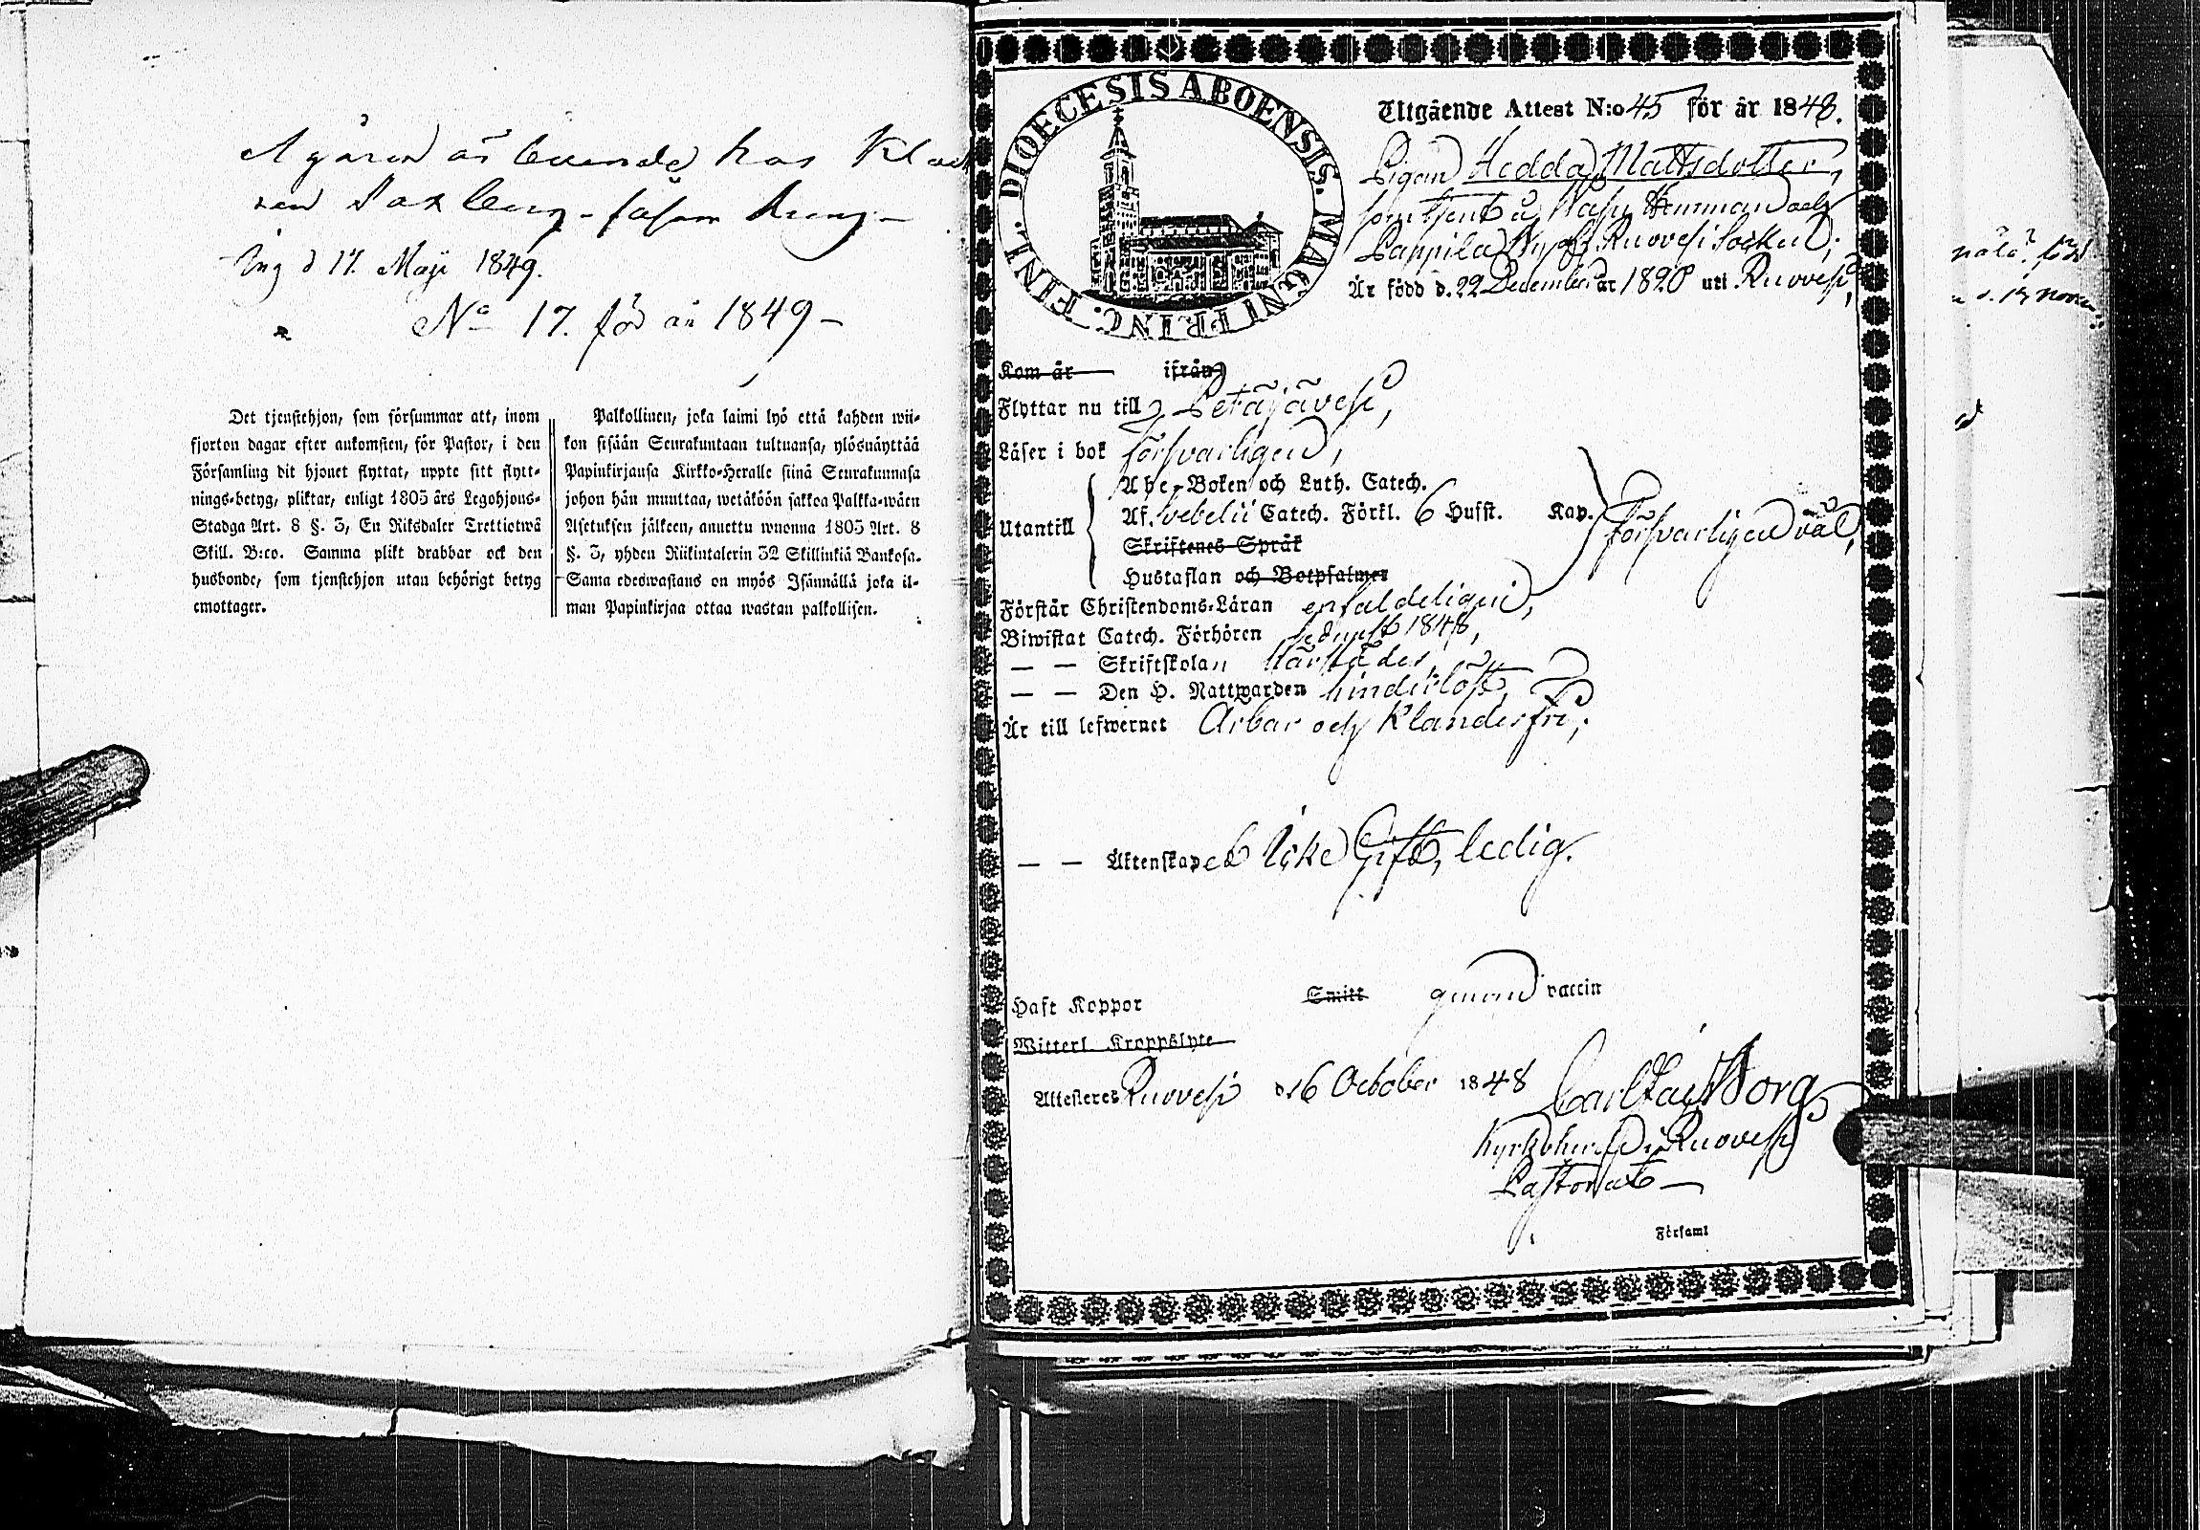 Ägaren är boende hos Klock
ren
Ing d 17. Maji 1849.
No 17. för år 1849 –
Det tjenstehjon, som försummar att, inom
fjorton dagar efter ankomsten, för Pastor, i den
Församling dit hjonet flyttat, uppte sitt flytt-
nings-betyg, pliktar, enligt 1805 års Legohjons-
Stadga Art. 8 §. 3, En Riksdaler Trettiotwå
Skill. B:co. Samma plikt drabbar ock den
husbonde, som tjenstehjon utan behörigt betyg
emottager.
Palkollinen, joka laimi lyö että kahden wii-
kon sisään Seurakuntaan tultuansa, ylösnäyttää
Papinkirjansa Kirkko-Heralle siinä Seurakunnasa
johon hän muuttaa, wetäköön sakkoa Palkka-wäen
Asetuksen jälkeen, annettu wuonna 1805 Art. 8
§. 3, yhden Riikintalerin 32 Skillinkiä Bankosa.
Sama edeswastaus on myös Isännällä joka il-
man Papinkirjaa ottaa wastan palkollisen.
DIOECESIS ABOENSIS. MAGNI PRINC. FINL.
Utgående Attest N:o 45 för år 1848.
Pigan Hedda Mattsdotter,
som tjent å
Pappila Ruovesi Socken;
Är född d. 22 December år 1820 uti Ruovesi,
Kom år ifrån
Flyttar nu till Petäjävesi,
Läser i bok försvarligen,
Utantill
Abc-Boken och Luth. Catech.
Af. Svebelii Catech. Förkl. 6 Hufst. Kap.
Skriftenes Språk
Hustaflan och Botpsalmer
försvarligen väl,
Förstår Christendoms-Läran enfaldeligen,
Biwistat Catech. Förhören sednast 1848,
— — Skriftskolan härstädes,
— — Den H. Nattwarden hinderlöst,
Är till lefwernet Ärbar och Klanderfri;
— — Äktenskapet Icke Gift, ledig.
Haft Koppor Smitt genom vaccin
Witterl. Kroppslyte
Attesteres Ruovesi d. 16 October 1848 Carl Borg
Kyrkoherde i Ruovesi
Pastorat —
Församl